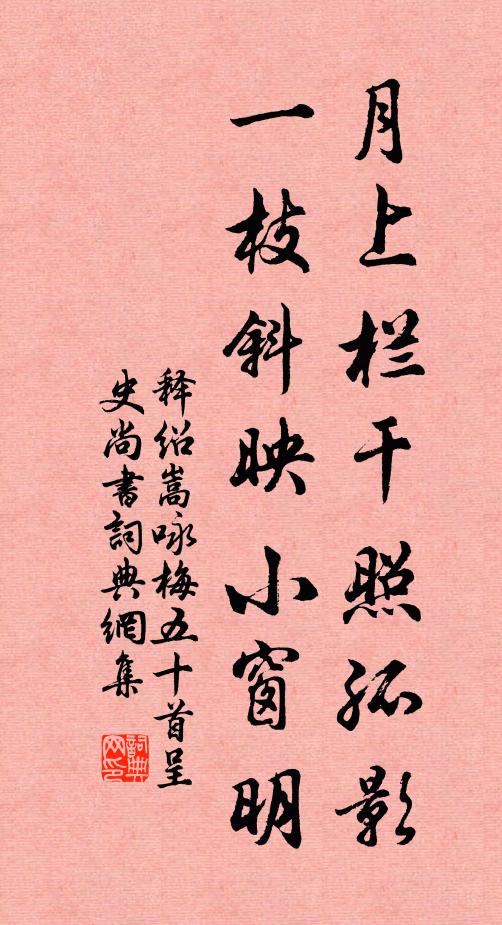 月上栏干照孤影
一枝斜映小窗明
释绍嵩咏梅五十首呈
史尚书詞典網集
詞典
网印